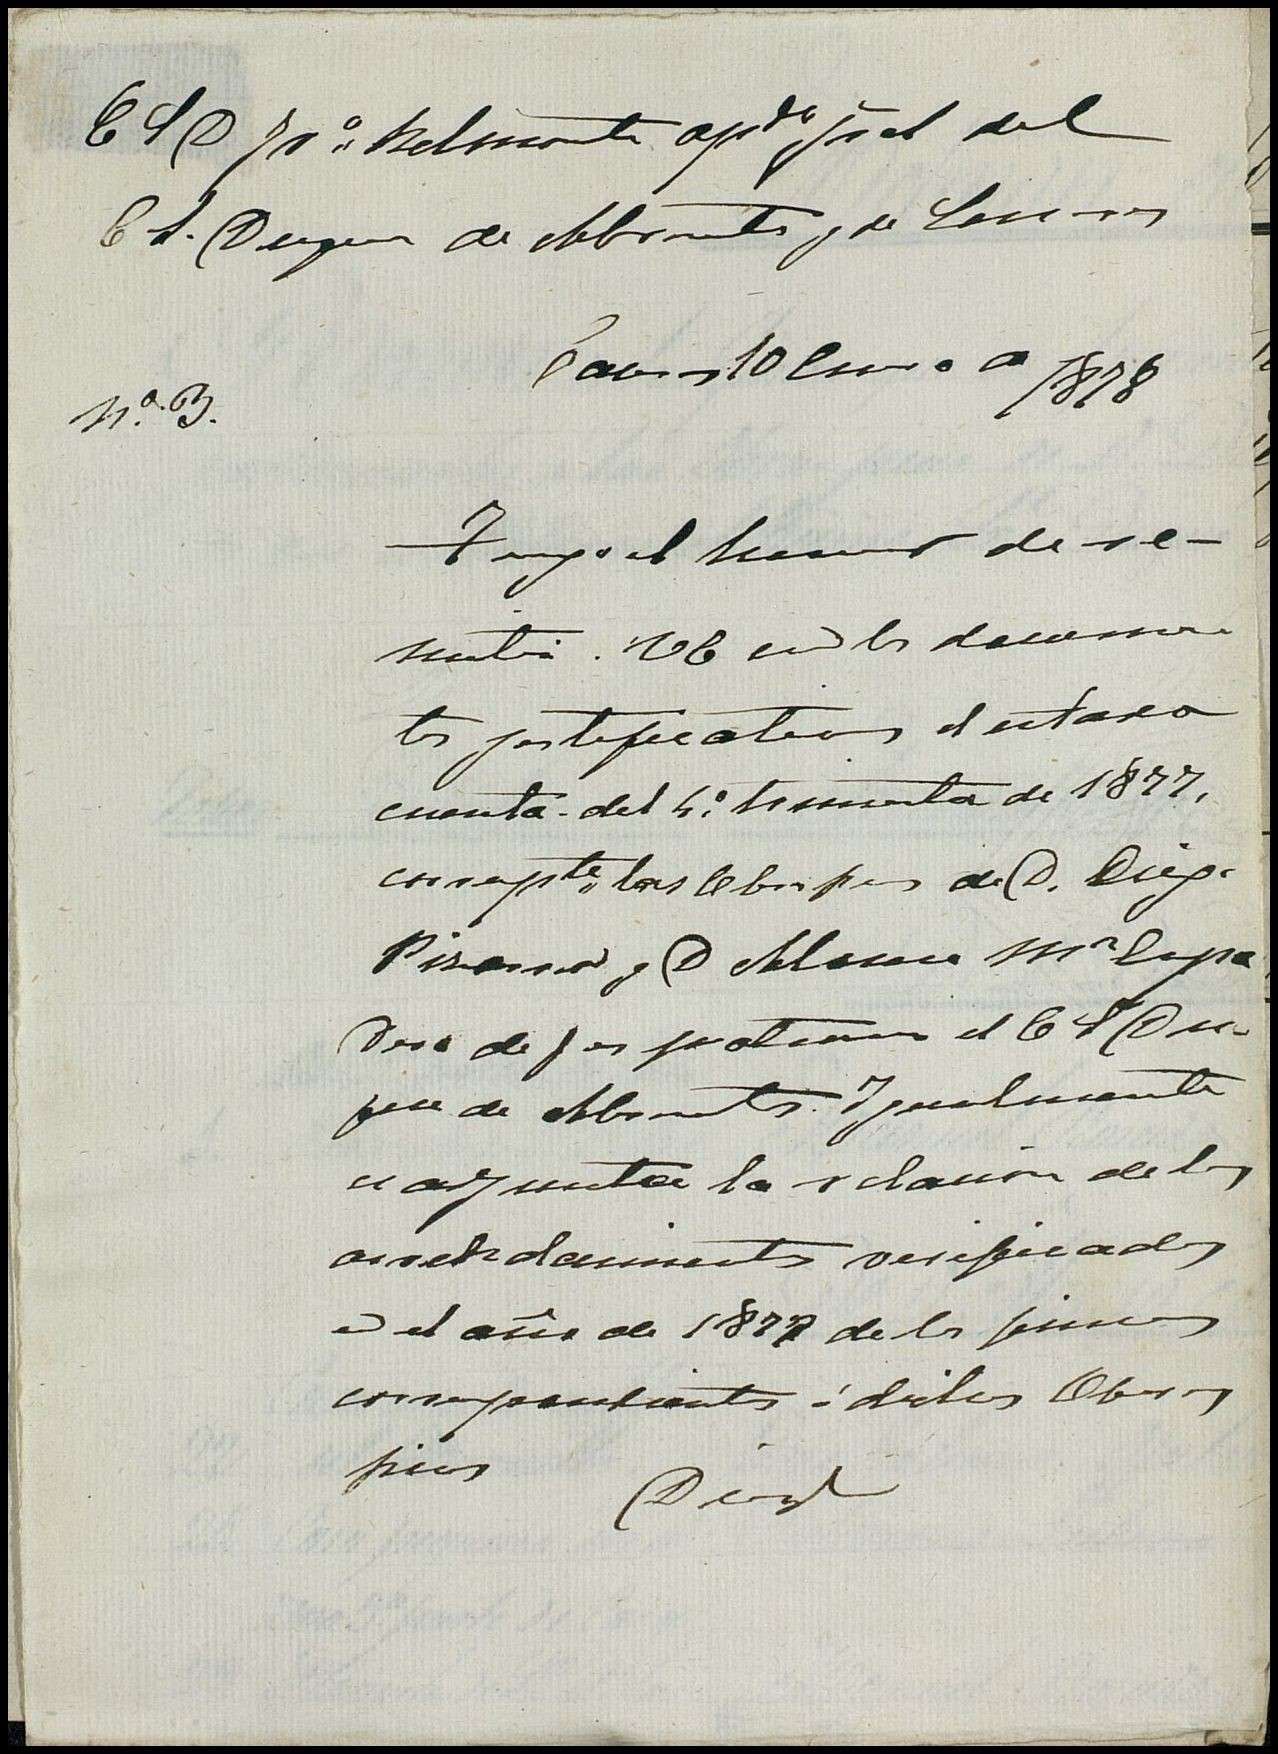 E S D Frº Belmonte apdº gral del
E S. Duque de Abrantes y de Linares
Caceres 10 Enero de 1878
Nº. 3.
Tengo el honor de re-
mitir a VE con los documen
tos justificativos el estado
cuenta del 4º trimestre de 1877,
correspte a las Obras pias de D. Diego
Pizarro y D Alonso Mª
de que es patrono el E S Du-
que de Abrantes. Igualmente
es adjunta la relacion de los
arrendamientos verificados
en el año de 1877 de las fincas
correspondientes á dichas Obras
pias
Dios &